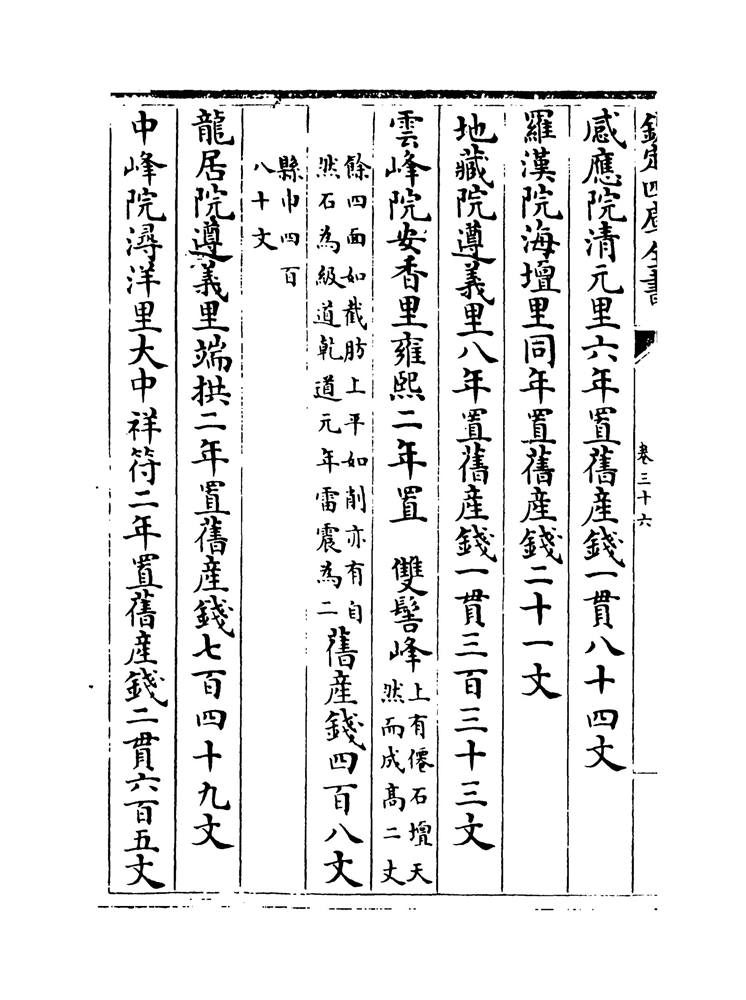 欽定四庫全書
卷三十六
感應院清元里六年置舊產錢一貫八十四文
羅漢院海壇里同年置舊產錢二十一文
地藏院遵義里八年置舊產錢一貫三百三十三文
雲峰院安香里雍熙二年置 雙髻峰上有僊石壇天
然而成髙二丈
餘四面如截肪上平如削亦有自
然石為級道乾道元年雷震為二舊產錢四百八文
縣巾四百
八十文
龍居院遵義里端拱二年置舊產錢七百四十九文
中峰院潯洋里大中祥符二年置舊產錢二貫六百五文